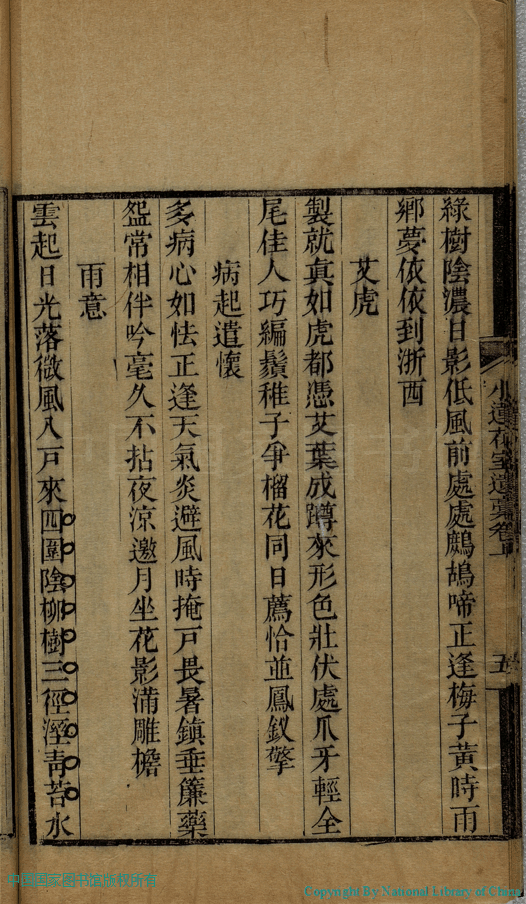 綠樹陰濃日影低風前處處鷓鴣啼正逢梅子黃時雨
鄉夢依依到浙西
艾虎
製就真如虎都憑艾葉成蹲來形色壯伏處爪牙輕全
尾佳人巧編鬚稚子爭榴花同日薦恰並鳳釵擎
病起遣懷
多病心如怯正逢天氣炎避風時掩戸畏暑鎮垂簾藥
盌常相伴吟毫久不拈夜涼邀月坐花影滿雕檐
雨意
雲起日光落微風入戸來四圍陰柳樹三徑溼靑苔水
小蓮花室遺稾卷上
五
中國國家圖書館版權所有
Copyright By National Library of China